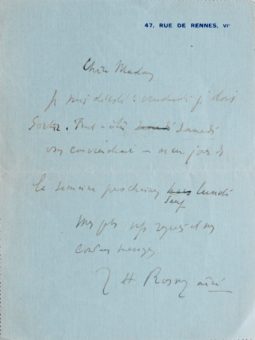 47, RUE DE RENNES, VIᵉ
Chère Madame
Je suis désolé : vendredi je dois
sortir. Peut-être samedi
vous conviendrait - ou un jour de
la semaine prochaine lundi
sauf
Mes plus
J H Rosny aîné